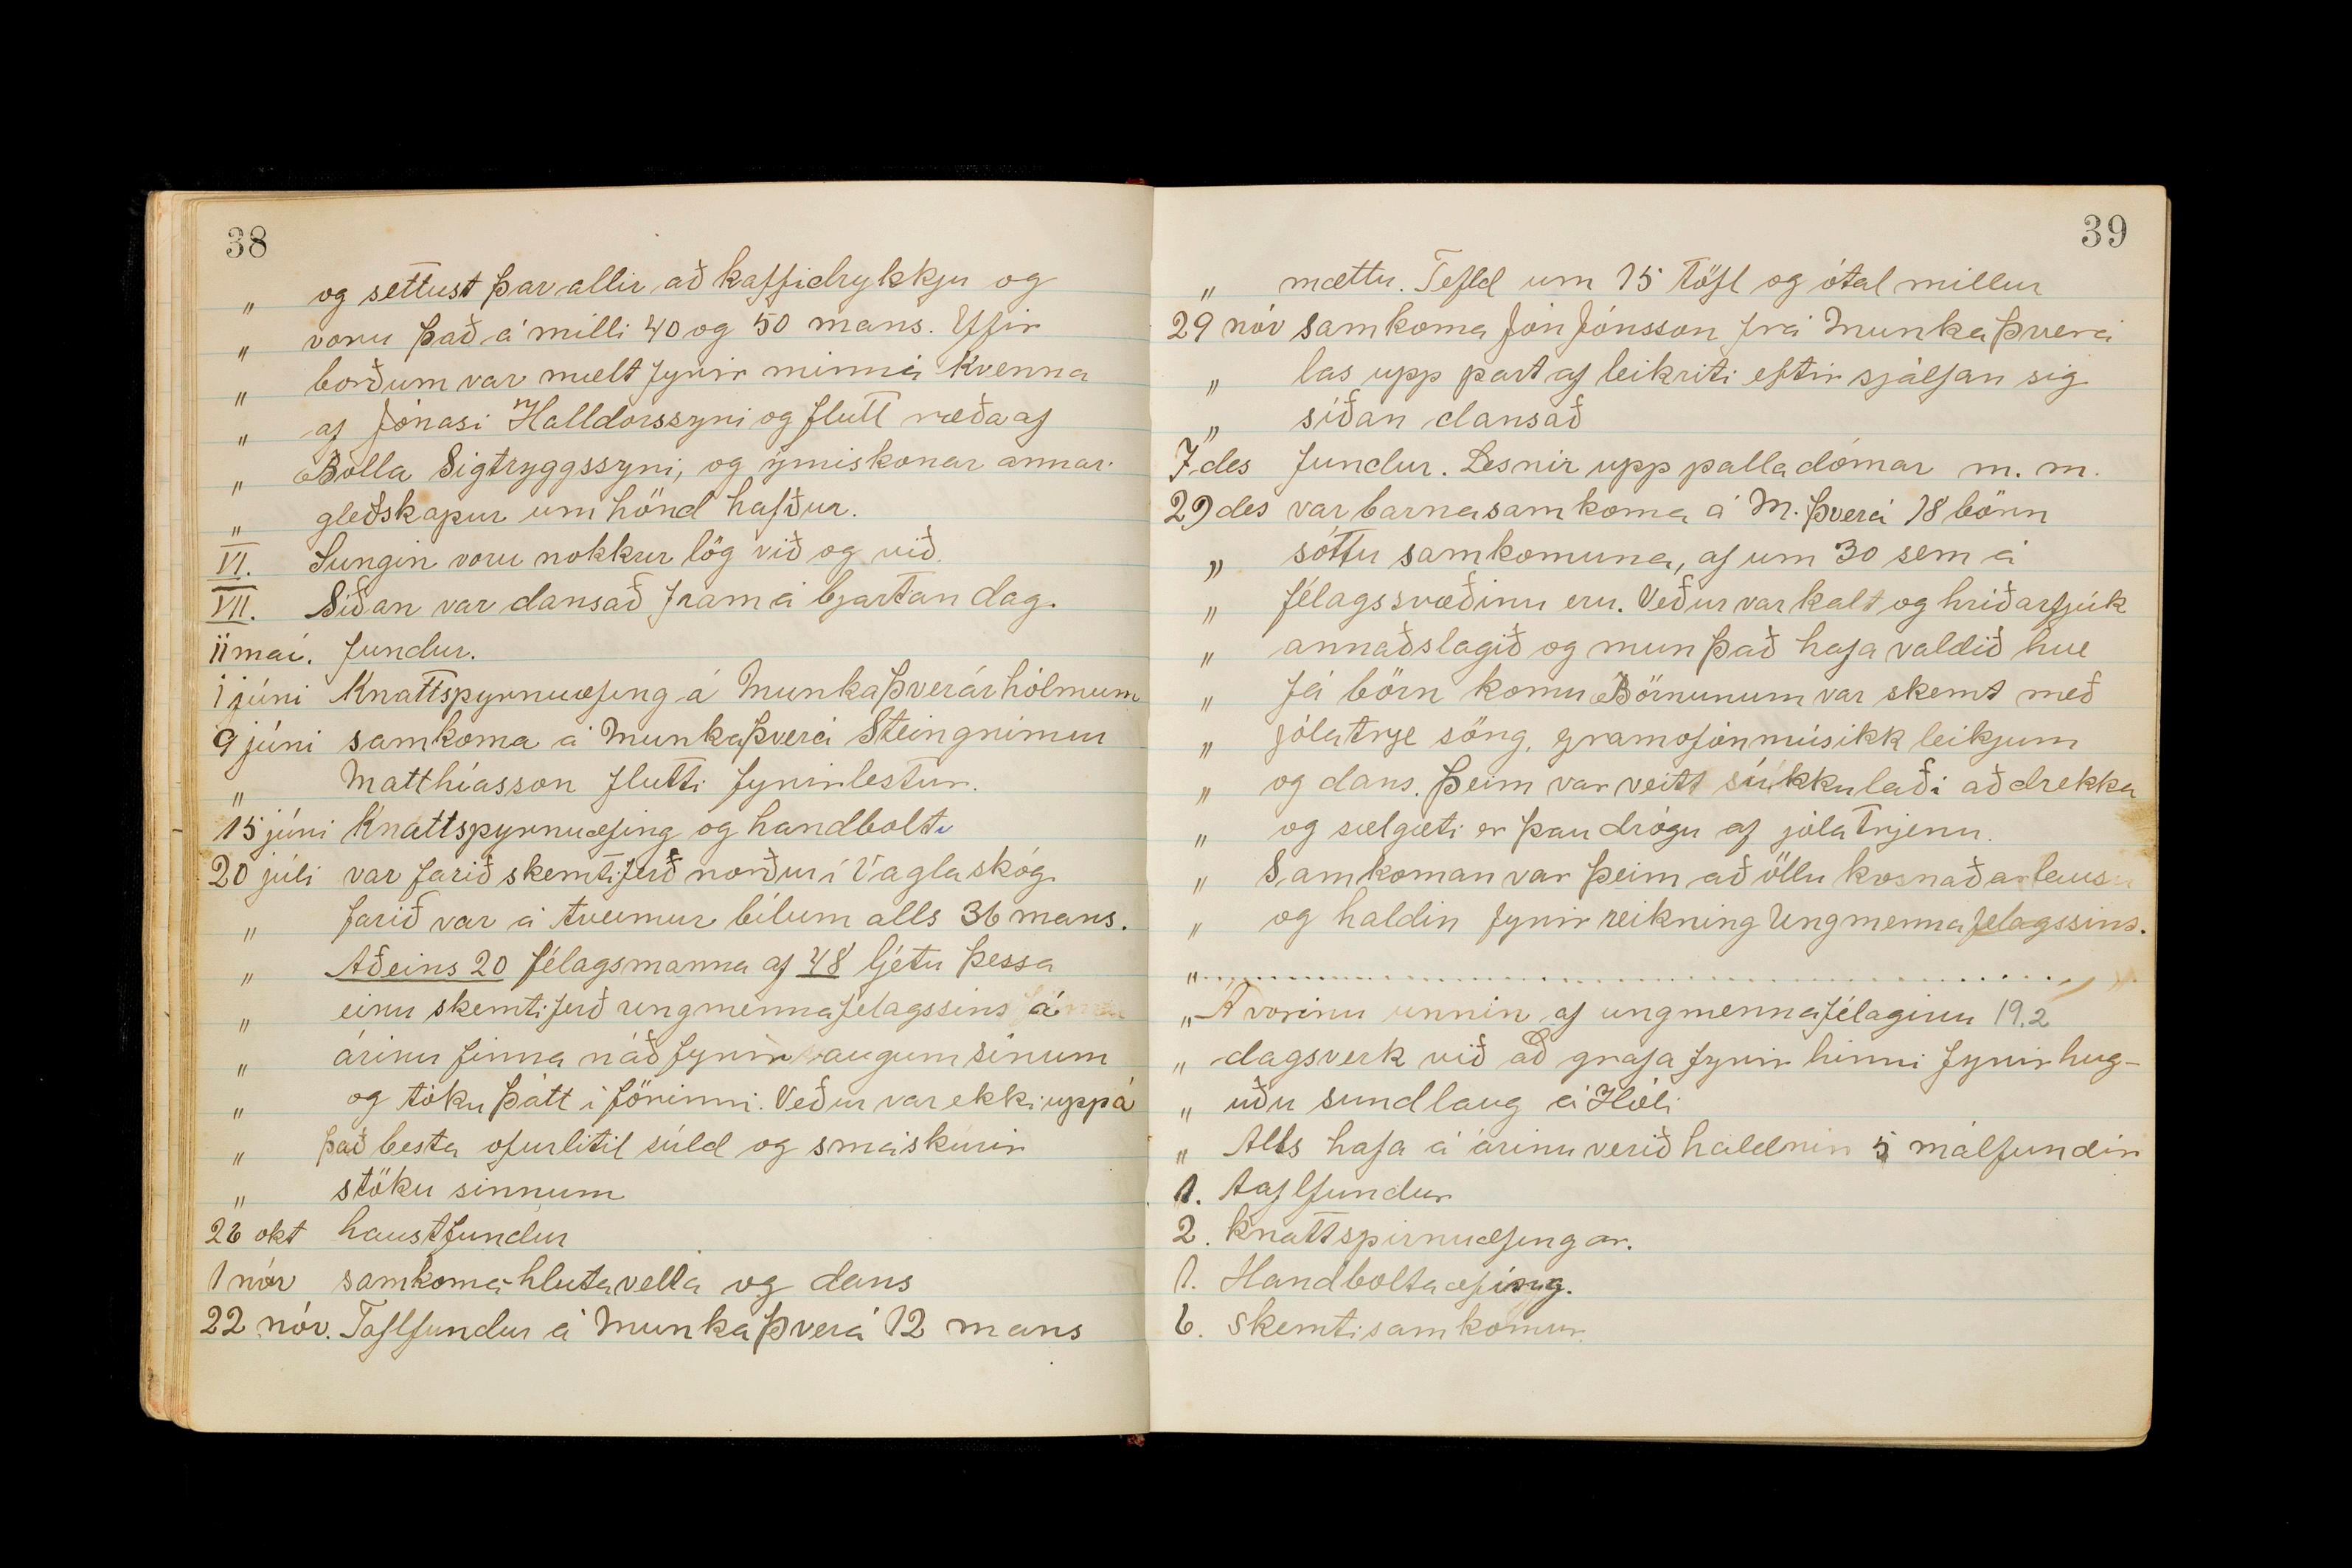 38
„ og settust þar allir að kaffidrykkju og
„ voru það á milli 40 og 50 mans. Yfir
„ borðum var mælt fyrir minni kvenna
„ af Jónasi Halldórssyni og flutt ræða af
„ Bolla Sigtryggssyni, og ýmiskonar annar
„ gleðskapur um hönd hafður.
VI. Sungin voru nokkur lög við og við.
VII. Síðan var dansað fram á bjartan dag.
11 maí. fundur.
1 júní Knattspyrnuæfing á Munkaþverárhólmum
9 júní samkoma á Munkaþverá Steingrímur
„ Matthíasson flutti fyrirlestur.
15 júní Knattspyrnuæfing og handbolti
20 júli var farið skemtiferð norður í Vaglaskóg
„ farið var á tveimur bílum alls 36 mans.
„ Aðeins 20 félagsmanna af 48 ljétu þessa
„ einu skemtiferð ungmennafélagssins á
„ árinu finna náð fyrir augum sínum
„ og tóku þátt í förinni. Veður var ekki uppá
„ það besta ofurlitil súld og smáskúrir
„ stöku sinnum
26 okt haustfundur
1 nóv samkoma-hlutavelta og dans
22 nóv. Taflfundur á Munkaþverá 12 mans
39
„ mættu. Tefld um 15 töfl og ótal millur
29 nóv samkoma Jón Jónsson frá Munkaþverá
„ las upp part af leikriti eftir sjálfan sig
„ síðan dansað
7 des fundur. Lesnir upp palladómar m. m.
29 des var barnasamkoma á M. þverá 18 börn
„ sóttu samkomuna, af um 30 sem á
„ félagssvæðinu eru. Veður var kalt og hríðarfjúk
„ annaðslagið og mun það hafa valdið hve
„ fá börn komu Börnunum var skemt með
„ jólatrje söng, gramofónmúsikk leikjum
„ og dans. Þeim var veitt súkkulaði að drekka
„ og sælgæti er þau drógu af jólatrjenu.
„ Samkoman var þeim að öllu kosnaðarlausu
„ og haldin fyrir reikning Ungmennafélagssins.
„
„ Á vorinu unnin af ungmennafélaginu 19,2
„ dagsverk við að grafa fyrir hinni fyrirhug-
„ uðu sundlaug á Hóli
„ Alls hafa á árinu verið haldnir 5 málfundir
1. taflfundur
2. knattspirnuæfingar.
1. Handboltaæfing.
6. skemtisamkomur.